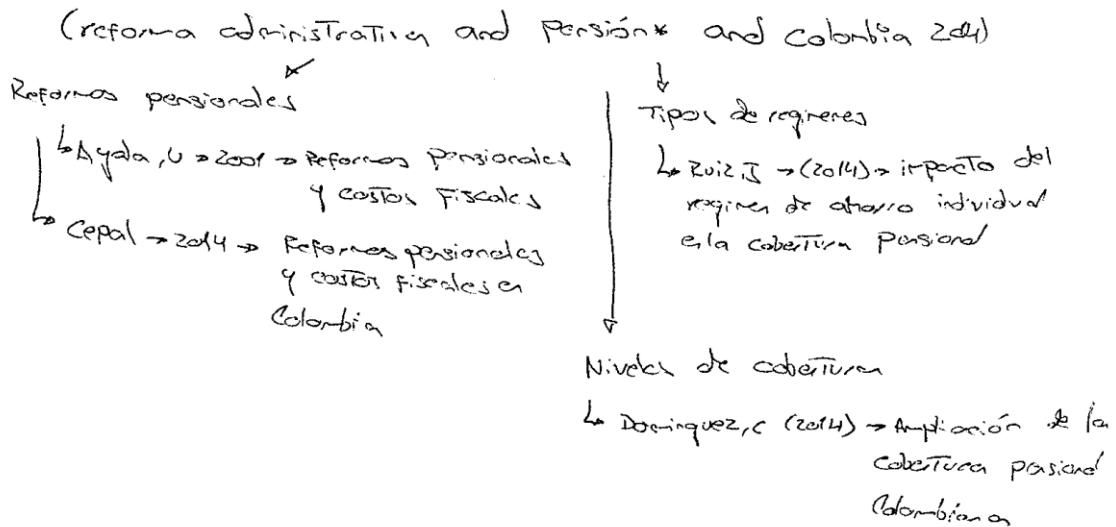 (reforma administrativa and pensión* and colombia 2014)
Reformas pensionales
↳ Ayala, U → 2001 → Reformas pensionales
y costos fiscales
↳ Cepal → 2014 → Reformas pensionales
y costos fiscales en
Colombia
Tipos de regimenes
↳ Ruiz, J → (2014) → impacto del
regimen de ahorro individual
en la cobertura pensional
Niveles de cobertura
↳ Dominguez, C (2014) → Ampliación de la
cobertura pensional
Colombiana